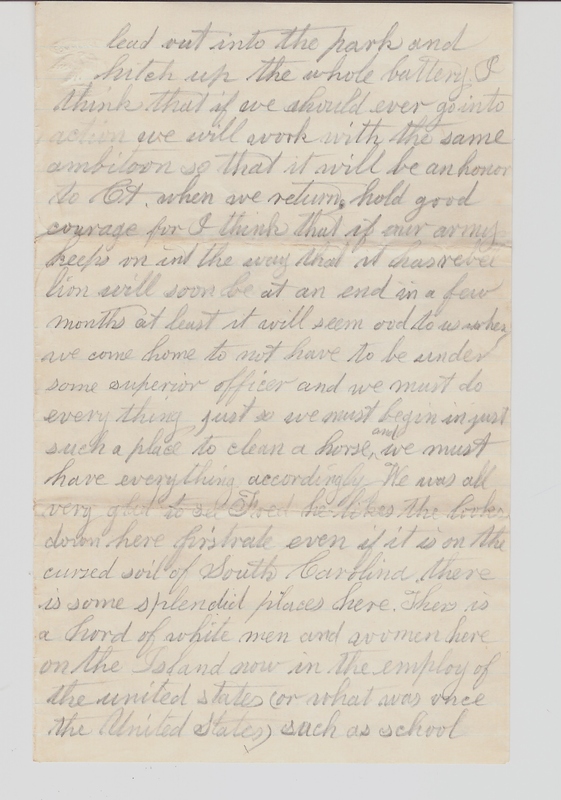 lead out into the park and
hitch up the whole battery I
think that if we should ever go into
action we will work with the same
ambitoon so that it will be an honor
to Ct. when we return, hold good
courage for I think that if our army
keeps on int the way that it has rebel
lion will soon be at an end in a few
months at least it will seem ood to us when
we come home to not have to be under
some superior officer and we must do
every thing just so we must begin in just
such a place to clean a horse, and we must
have everything accordingly We was all
very glad to see Fred he likes the looks
down here firstrate even if it is on the
cursed soil of South Carolina, there
is some splendid places here. Ther is
a hord of white men and women here
on the Island now in the employ of
the united states (or what was once
the United States) such as school